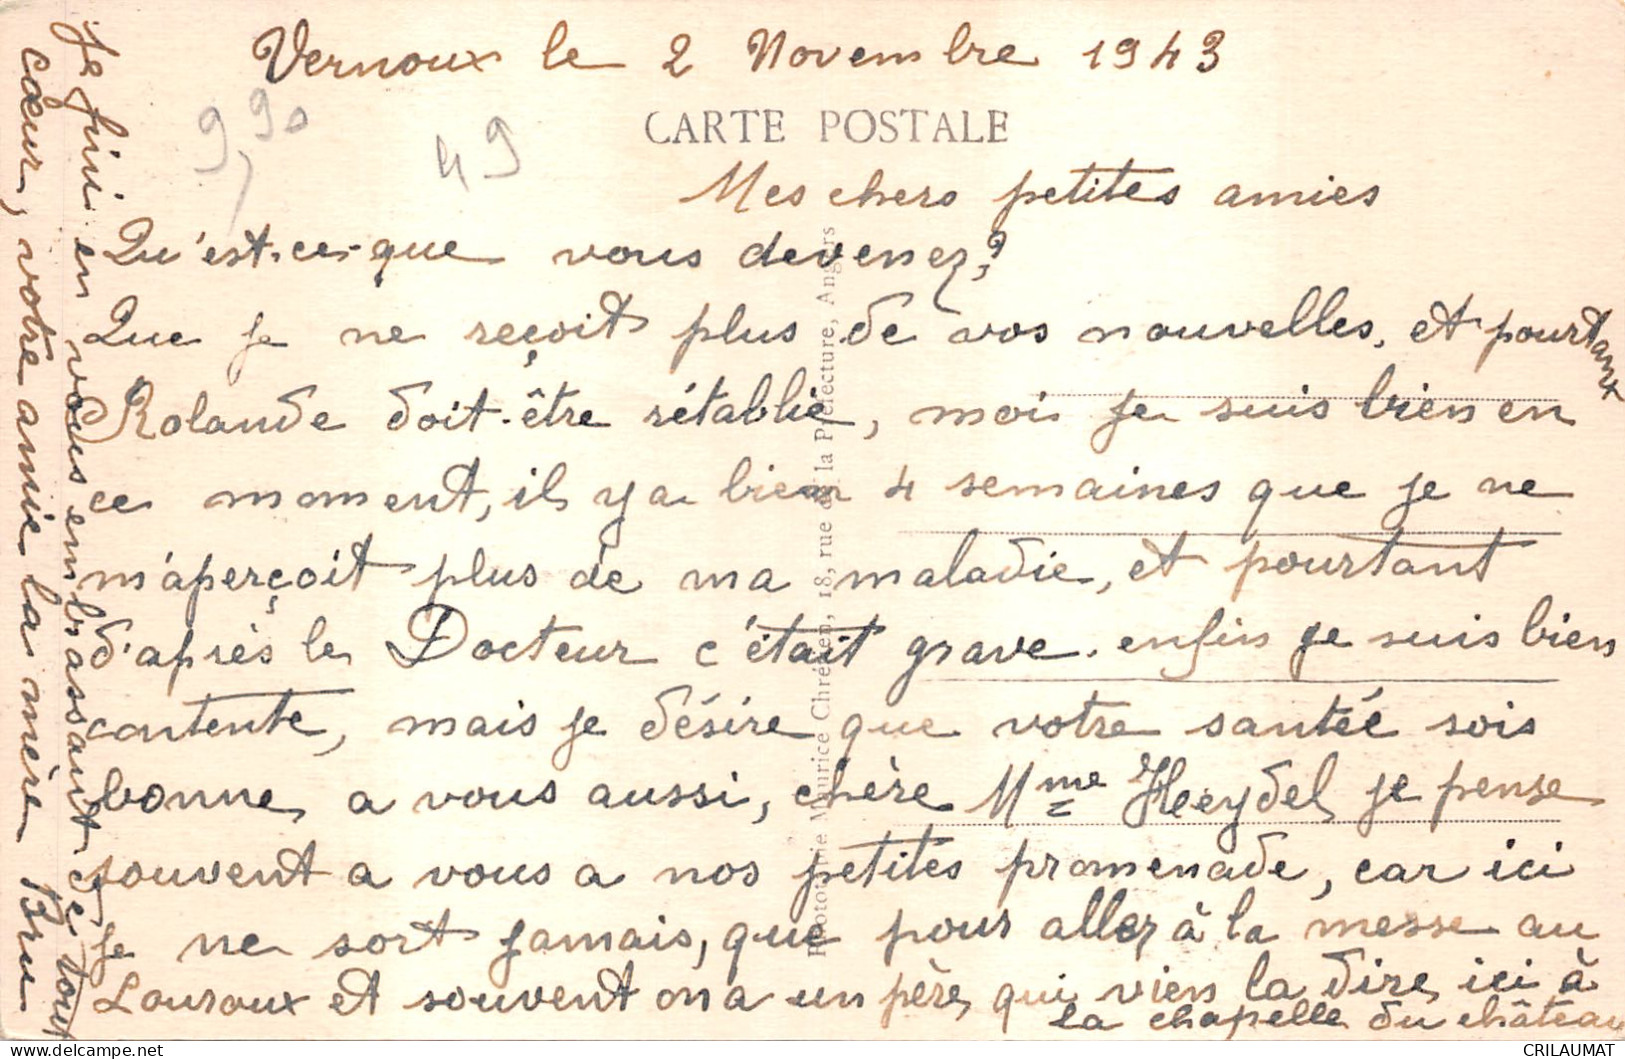 Vernoux le 2 Novembre 1943
9,90
49
CARTE POSTALE
Mes chers petites amies
Qu'est-ce-que vous devenez?
Que je ne reçoit plus de vos nouvelles, et pourtant
Rolande doit-être rétablie, moi je suis bien en
ce moment, il y a bien 4 semaines que je ne
m'aperçoit plus de ma maladie, et pourtant
d'après le Docteur c'était grave. enfin je suis bien
contente, mais je désire que votre santée sois
bonne, a vous aussi, chère Mme Heydel je pense
souvent a vous a nos petites promenade, car ici
je ne sort jamais, que pour aller à la messe au
Louroux et souvent on a un père, qui vien la dire, ici à
la chapelle du château
Je fini en vous embrassant de tout
cœur, votre amie la mère Bru
Phototypie Maurice Chrétien, 18, rue de la Préfecture, Angers
CRILAUMAT